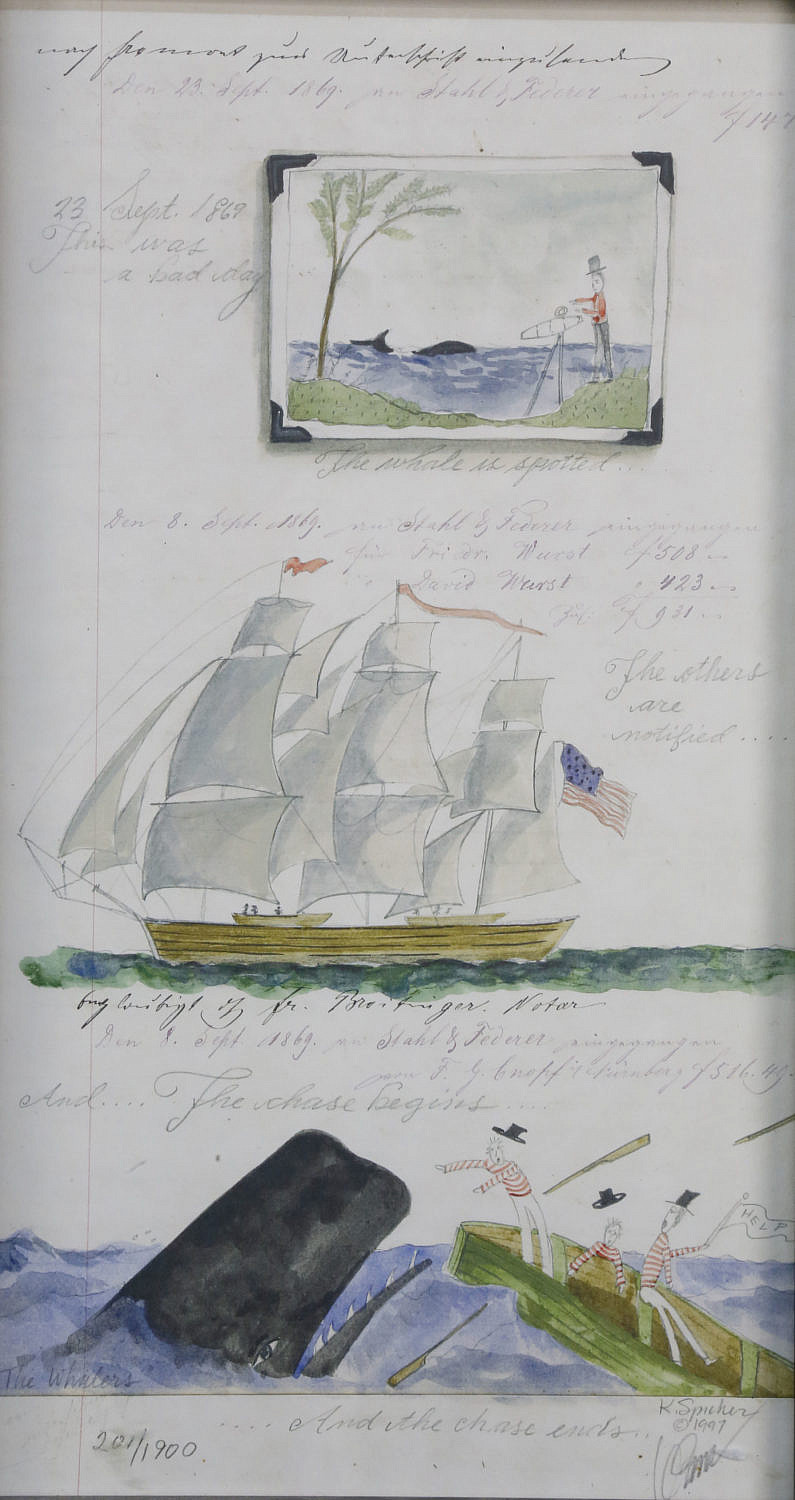 nach zur Unterschrift einzusenden
Den 23. Sept. 1869. an Stahl & Federer eingegangen
f 147
23 Sept. 1869
This was
a bad day
The whale is spotted....
Den 8. Sept. 1869. an Stahl & Federer eingegangen
für Friedr. Wurst f 508
David Wurst " 423
f 931
The others
are
notified....
Notar
Den 8. Sept. 1869. an Stahl & Federer eingegangen
von F. G. Nürnberg f 516.49.
And.... The chase begins....
HELP
The Whalers
K. Spicher
© 1997
.... And the chase ends...
201/1900